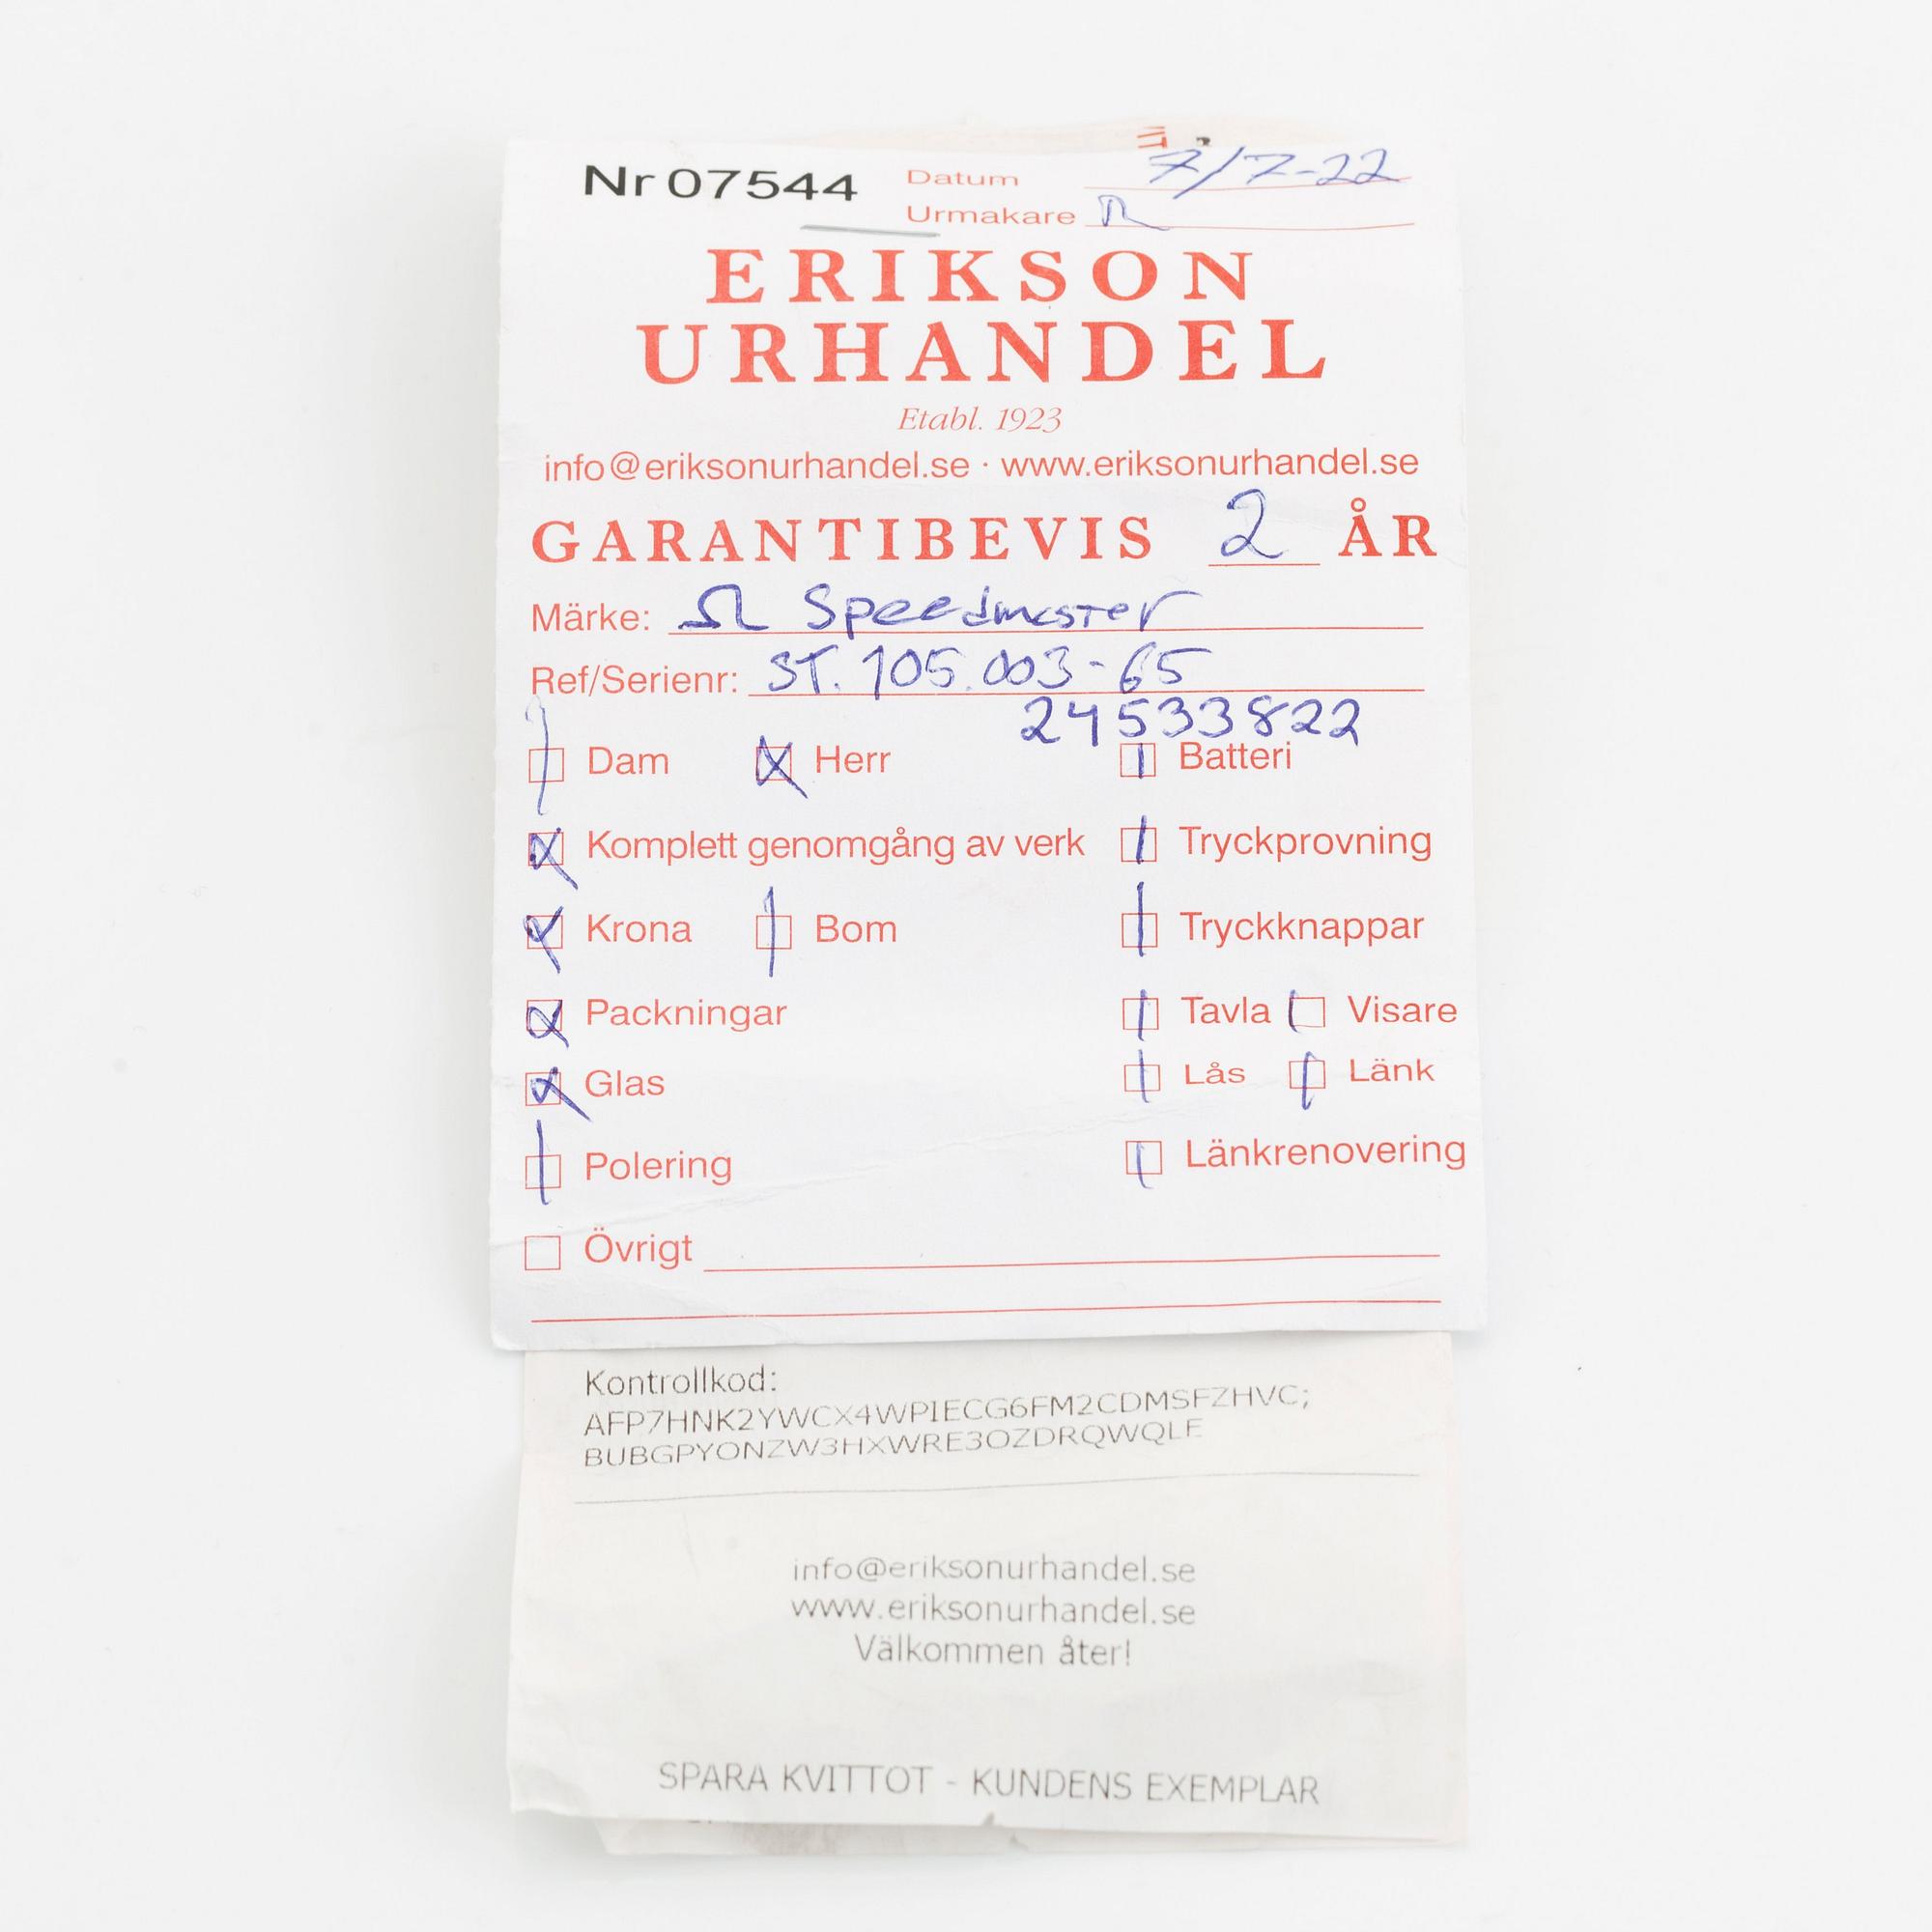 Nr 07544 Datum 7/7-22
Urmakare
ERIKSON
URHANDEL
Etabl. 1923
info@eriksonurhandel.se · www.eriksonurhandel.se
GARANTIBEVIS 2 ÅR
Märke: Ω Speedmaster
Ref/Serienr: ST. 105.003-65
24533822
Dam Herr Batteri
Komplett genomgång av verk Tryckprovning
Krona Bom Tryckknappar
Packningar Tavla Visare
Glas Lås Länk
Polering Länkrenovering
Övrigt
Kontrollkod:
AFP7HNK2YWCX4WPIECG6FM2CDMSFZHVC;
BUBGPYONZW3HXWRE3OZDRQWQLE
info@eriksonurhandel.se
www.eriksonurhandel.se
Välkommen åter!
SPARA KVITTOT - KUNDENS EXEMPLAR